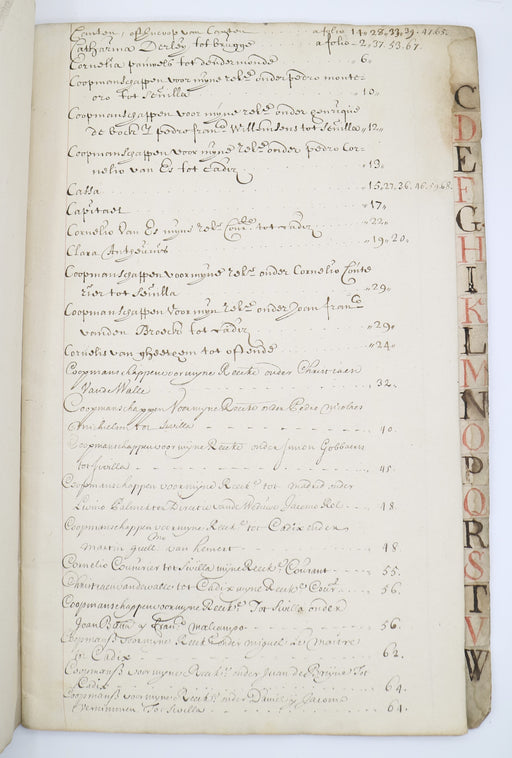 Canten, afstheroop van Canten a folio 14-28.33.39.47.65.
Catharina Derley tot brugge a folio - 2.37.53.67.
Cornelia pauwels tot dendermonde 6
Coopmanschappen voor mijne rek. onder pedro monte-
oro tot Sevilla 10
Coopmanschappen voor mijne rek. onder henrique
de Cock pedro Willemsens tot Sevilla 12
Coopmanschappen voor mijne rek. onder pedro Cor-
nelio van Es tot Cadiz 13
Cassa 15.27.36.46.59.68.
Capitael 17
Cornelio Van Es mijne rek. tot Cadiz 22
Clara Antheunis 19 20
Coopmanschappen voor mijne rek. onder Cornelio Coute
rier tot Sevilla 29
Coopmanschappen Voor mijn rek. onder Joan Fran.co
vanden Broecke tot Cadiz 29
Cornelis van gheeregem tot ostende 24
Coopmanschappen voor mijne Reecke onder Christiaen
Vande Walle 32.
Coopmanschappen Voor mijne Reecke onder Pedro Nicolaes
Michielsen tot Sivilla 40.
Coopmanschappen voor mijne Reecke onder Simon Gobbaerts
tot Sivilla 45.
Coopmanschappen voor mijne Reeck. tot Madrid onder
Livino Balmeerter Directie vande Weduwe Jacomo Rol 48
Coopmanschappen voor mijne Reeck. tot Cadix onder
Martin van hemert 48
Cornelio Courtrier tot Sivilla mijne Reeck. Courant 55.
Christiaen vande walle tot Cadix mijne Reeck. Cour. 56.
Coopmanschappen voor mijne Reeck. Tot Sivilla onder
Joan Batta y Fran.co malcampo 56.
Coopmanss. voor mijne Reeck. onder Miguel de Maitre
tot Cadix 62.
Coopmanss. voor mijne Reeck. onder Juan de Bruyne Tot
Cadix 64.
Coopmanss voor mijne Reeck. onder Daniel y Jacomo
Tot Sivilla 64.
C
D
E
F
G
H
I
K
L
M
N
O
P
Q
R
S
T
V
W